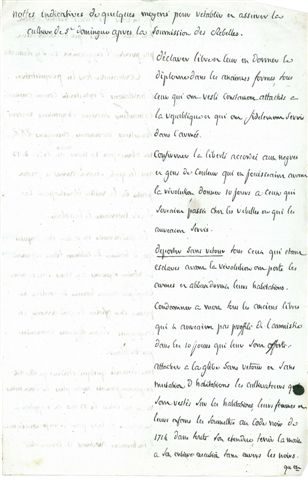 nottes indicatives de quelques moyens pour retablir et assurer la
culture de St Domingue apres la soumission des Rebelles.
Déclarer libre et leur en donner le
diplome dans les anciennes formes, tous
ceux qui ont resté constamment attachés a
la republique et qui ont fidelement servis
dans l'armée.
Confirmer la liberté accordé aux negres
et gens de couleur qui en jouissaient avant
la révolution donner 10 jours a ceux qui
seroient passés chez les rebelles ou qui les
auroient servis.
Deporter sans retour tous ceux qui étant
esclaves avant la révolution ont porté les
armes en abbandonnant leurs habitations.
Condamner a mort tous les anciens libres
qui n'auroient pas profité de l'amnistie
dans les 10 jours qui leur sont offerts.
attacher a la glèbe sans retour et sans
mutation d'habitations les cultivateurs qui
sont restés sur les habitations leurs femmes et
leurs enfans les soumettre au code noir de
1724 dans toute son etendue tenir la main
a son entiere execution sans envers les noirs.